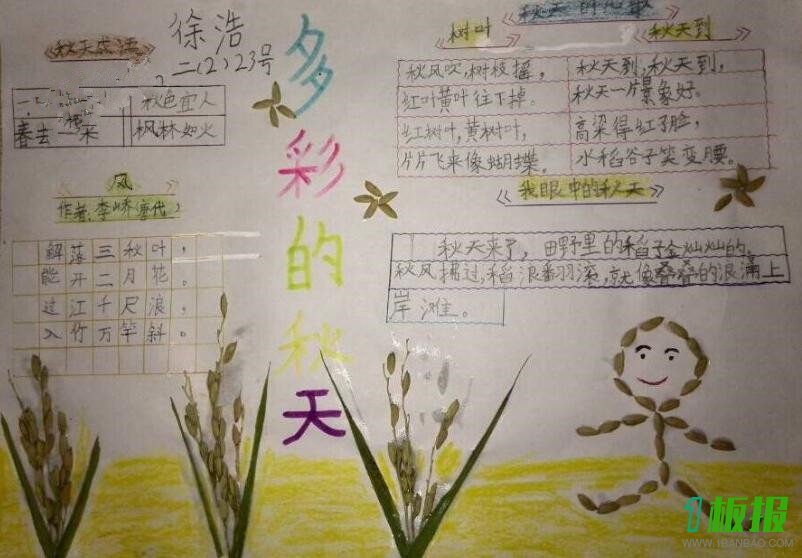 秋天成语
徐浩
二(2)23号
一
秋色宜人
春去
枫林如火
风
作者:李峤(唐代)
解落三秋叶,
能开二月花。
过江千尺浪,
入竹万竿斜。
多彩的秋天
秋天的儿歌
树叶
秋风吹,树枝摇,
红叶黄叶往下掉。
红树叶,黄树叶,
片片飞来像蝴蝶。
秋天到
秋天到,秋天到,
秋天一片景象好。
高梁得红了脸,
水稻谷子笑变腰。
我眼中的秋天
秋天来了,田野里的稻子金灿灿的,
秋风拂过,稻浪翻滚,就像叠叠的浪涌上
岸滩。
1板报
WWW.1BANBAO.COM